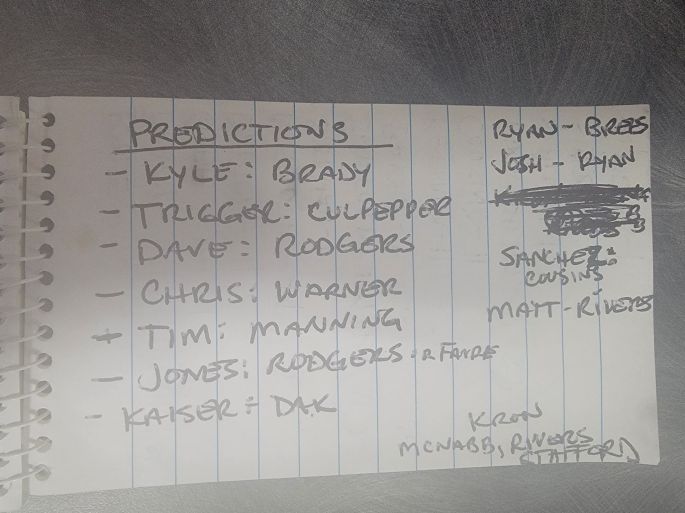 PREDICTIONS
- KYLE: BRADY
- TRIGGER: CULPEPPER
- DAVE: RODGERS
- CHRIS: WARNER
- TIM: MANNING
- JONES: RODGERS OR FAVRE
- KAISER: DAK
RYAN - BREES
JOSH - RYAN
SANCHEZ:
COUSINS
MATT - RIVERS
KRON
MCNABB, RIVERS
STAFFORD